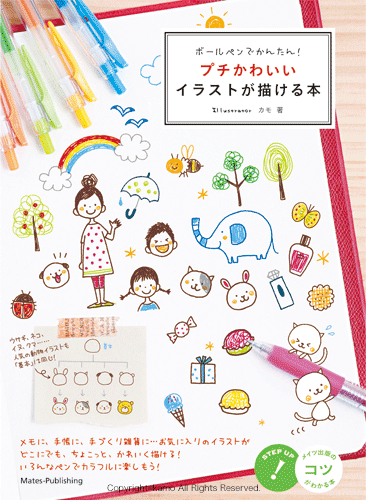 ボールペンでかんたん!
プチかわいい
イラストが描ける本
Illustrator カモ 著
ウサギ、ネコ、
イヌ、クマ……
人気の動物イラストも
「基本」は同じ!
メモに、手帳に、手づくり雑貨に…お気に入りのイラストが
どこにでも、ちょこっと、かわいく描ける!
いろんなペンでカラフルに楽しもう!
Mates-Publishing
STEP UP
!
メイツ出版の
コツ
がわかる本
Copyright Kamo All Rights Reserved.